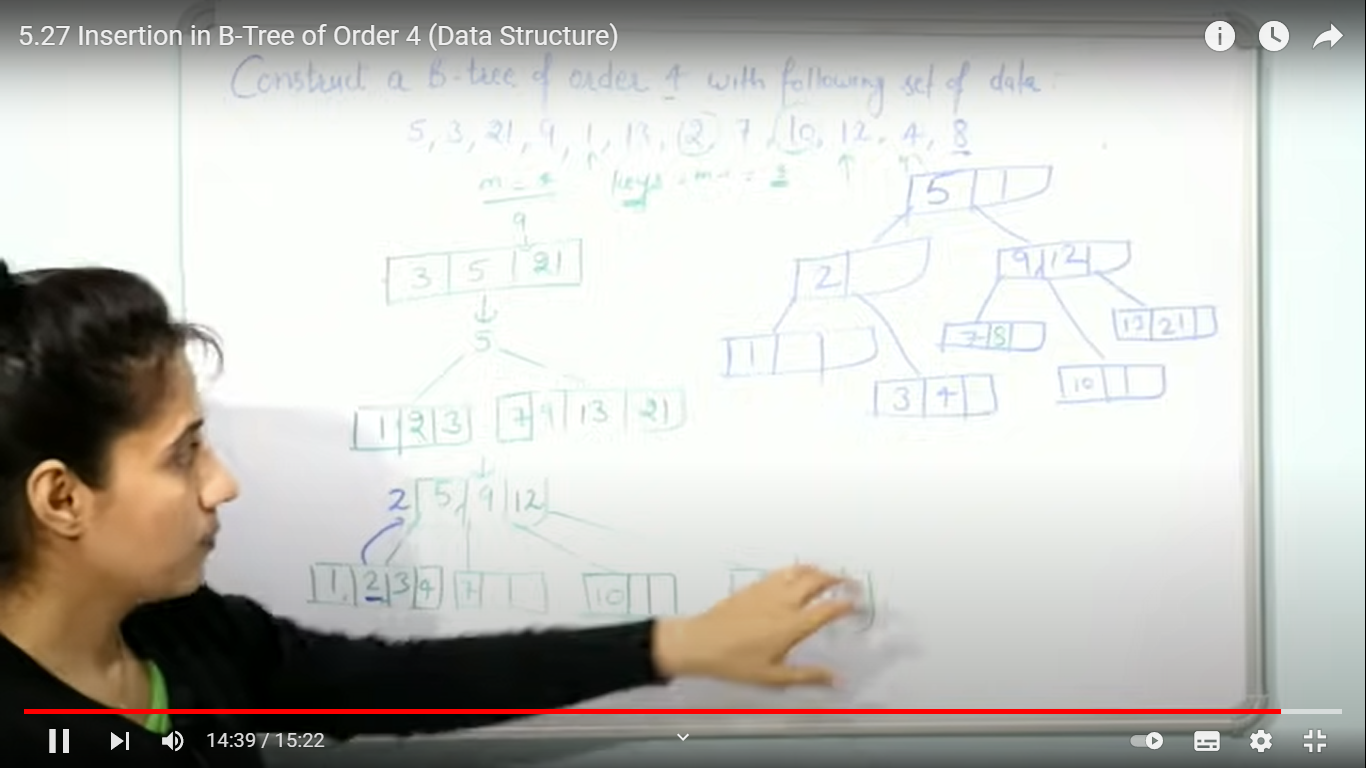 5.27 Insertion in B-Tree of Order 4 (Data Structure)
Construct a B-tree of order 4 with following set of data:
5, 3, 21, 9, 1, 13, 2, 7, 10, 12, 4, 8
m = 4 keys = m-1 = 3
9
3 5 21
5
1 2 3 7 9 13 21
2 5 9 12
1 2 3 4 7 10
5
2 9 12
1 7 8 13 21
3 4 10
14:39 / 15:22